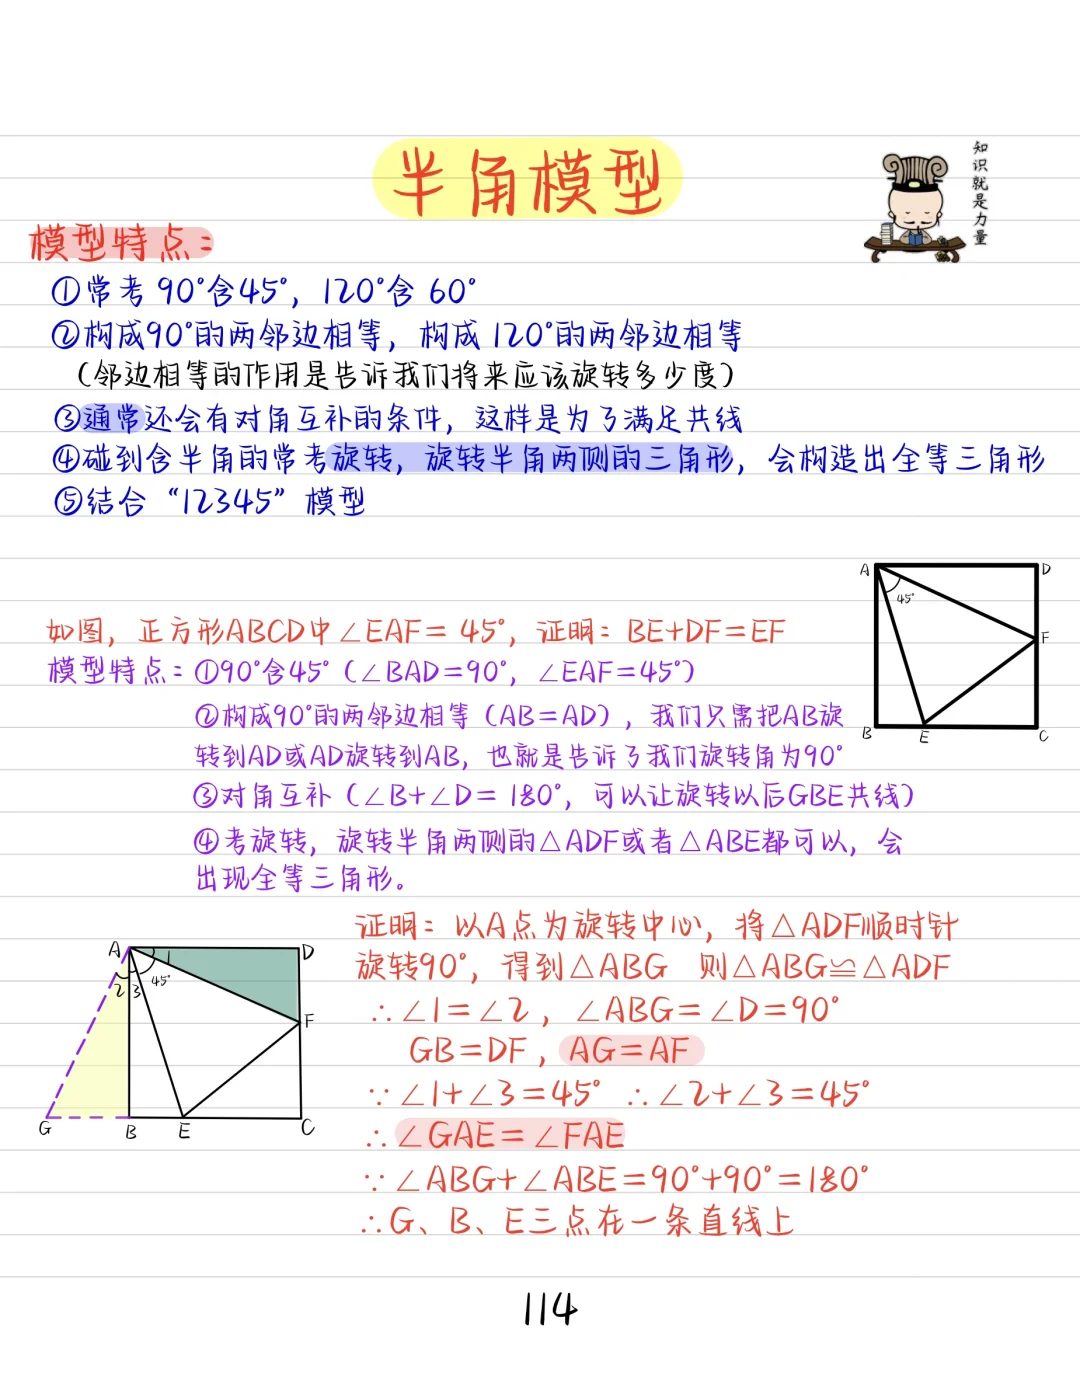 半角模型
知识就是力量
模型特点：
①常考 90°含45°，120°含 60°
②构成90°的两邻边相等，构成 120°的两邻边相等
（邻边相等的作用是告诉我们将来应该旋转多少度）
③通常还会有对角互补的条件，这样是为了满足共线
④碰到含半角的常考旋转，旋转半角两侧的三角形，会构造出全等三角形
⑤结合“12345”模型
A D
45°
F
B E C
如图，正方形ABCD中∠EAF＝45°，证明：BE+DF＝EF
模型特点：①90°含45°（∠BAD＝90°，∠EAF＝45°）
②构成90°的两邻边相等（AB＝AD），我们只需把AB旋
转到AD或AD旋转到AB，也就是告诉了我们旋转角为90°
③对角互补（∠B+∠D＝180°，可以让旋转以后GBE共线）
④考旋转，旋转半角两侧的△ADF或者△ABE都可以，会
出现全等三角形。
A D
1
2 3 45°
F
G B E C
证明：以A点为旋转中心，将△ADF顺时针
旋转90°，得到△ABG 则△ABG≌△ADF
∴∠1＝∠2，∠ABG＝∠D＝90°
GB＝DF，AG＝AF
∵∠1+∠3＝45° ∴∠2+∠3＝45°
∴∠GAE＝∠FAE
∵∠ABG+∠ABE＝90°+90°＝180°
∴G、B、E三点在一条直线上
114